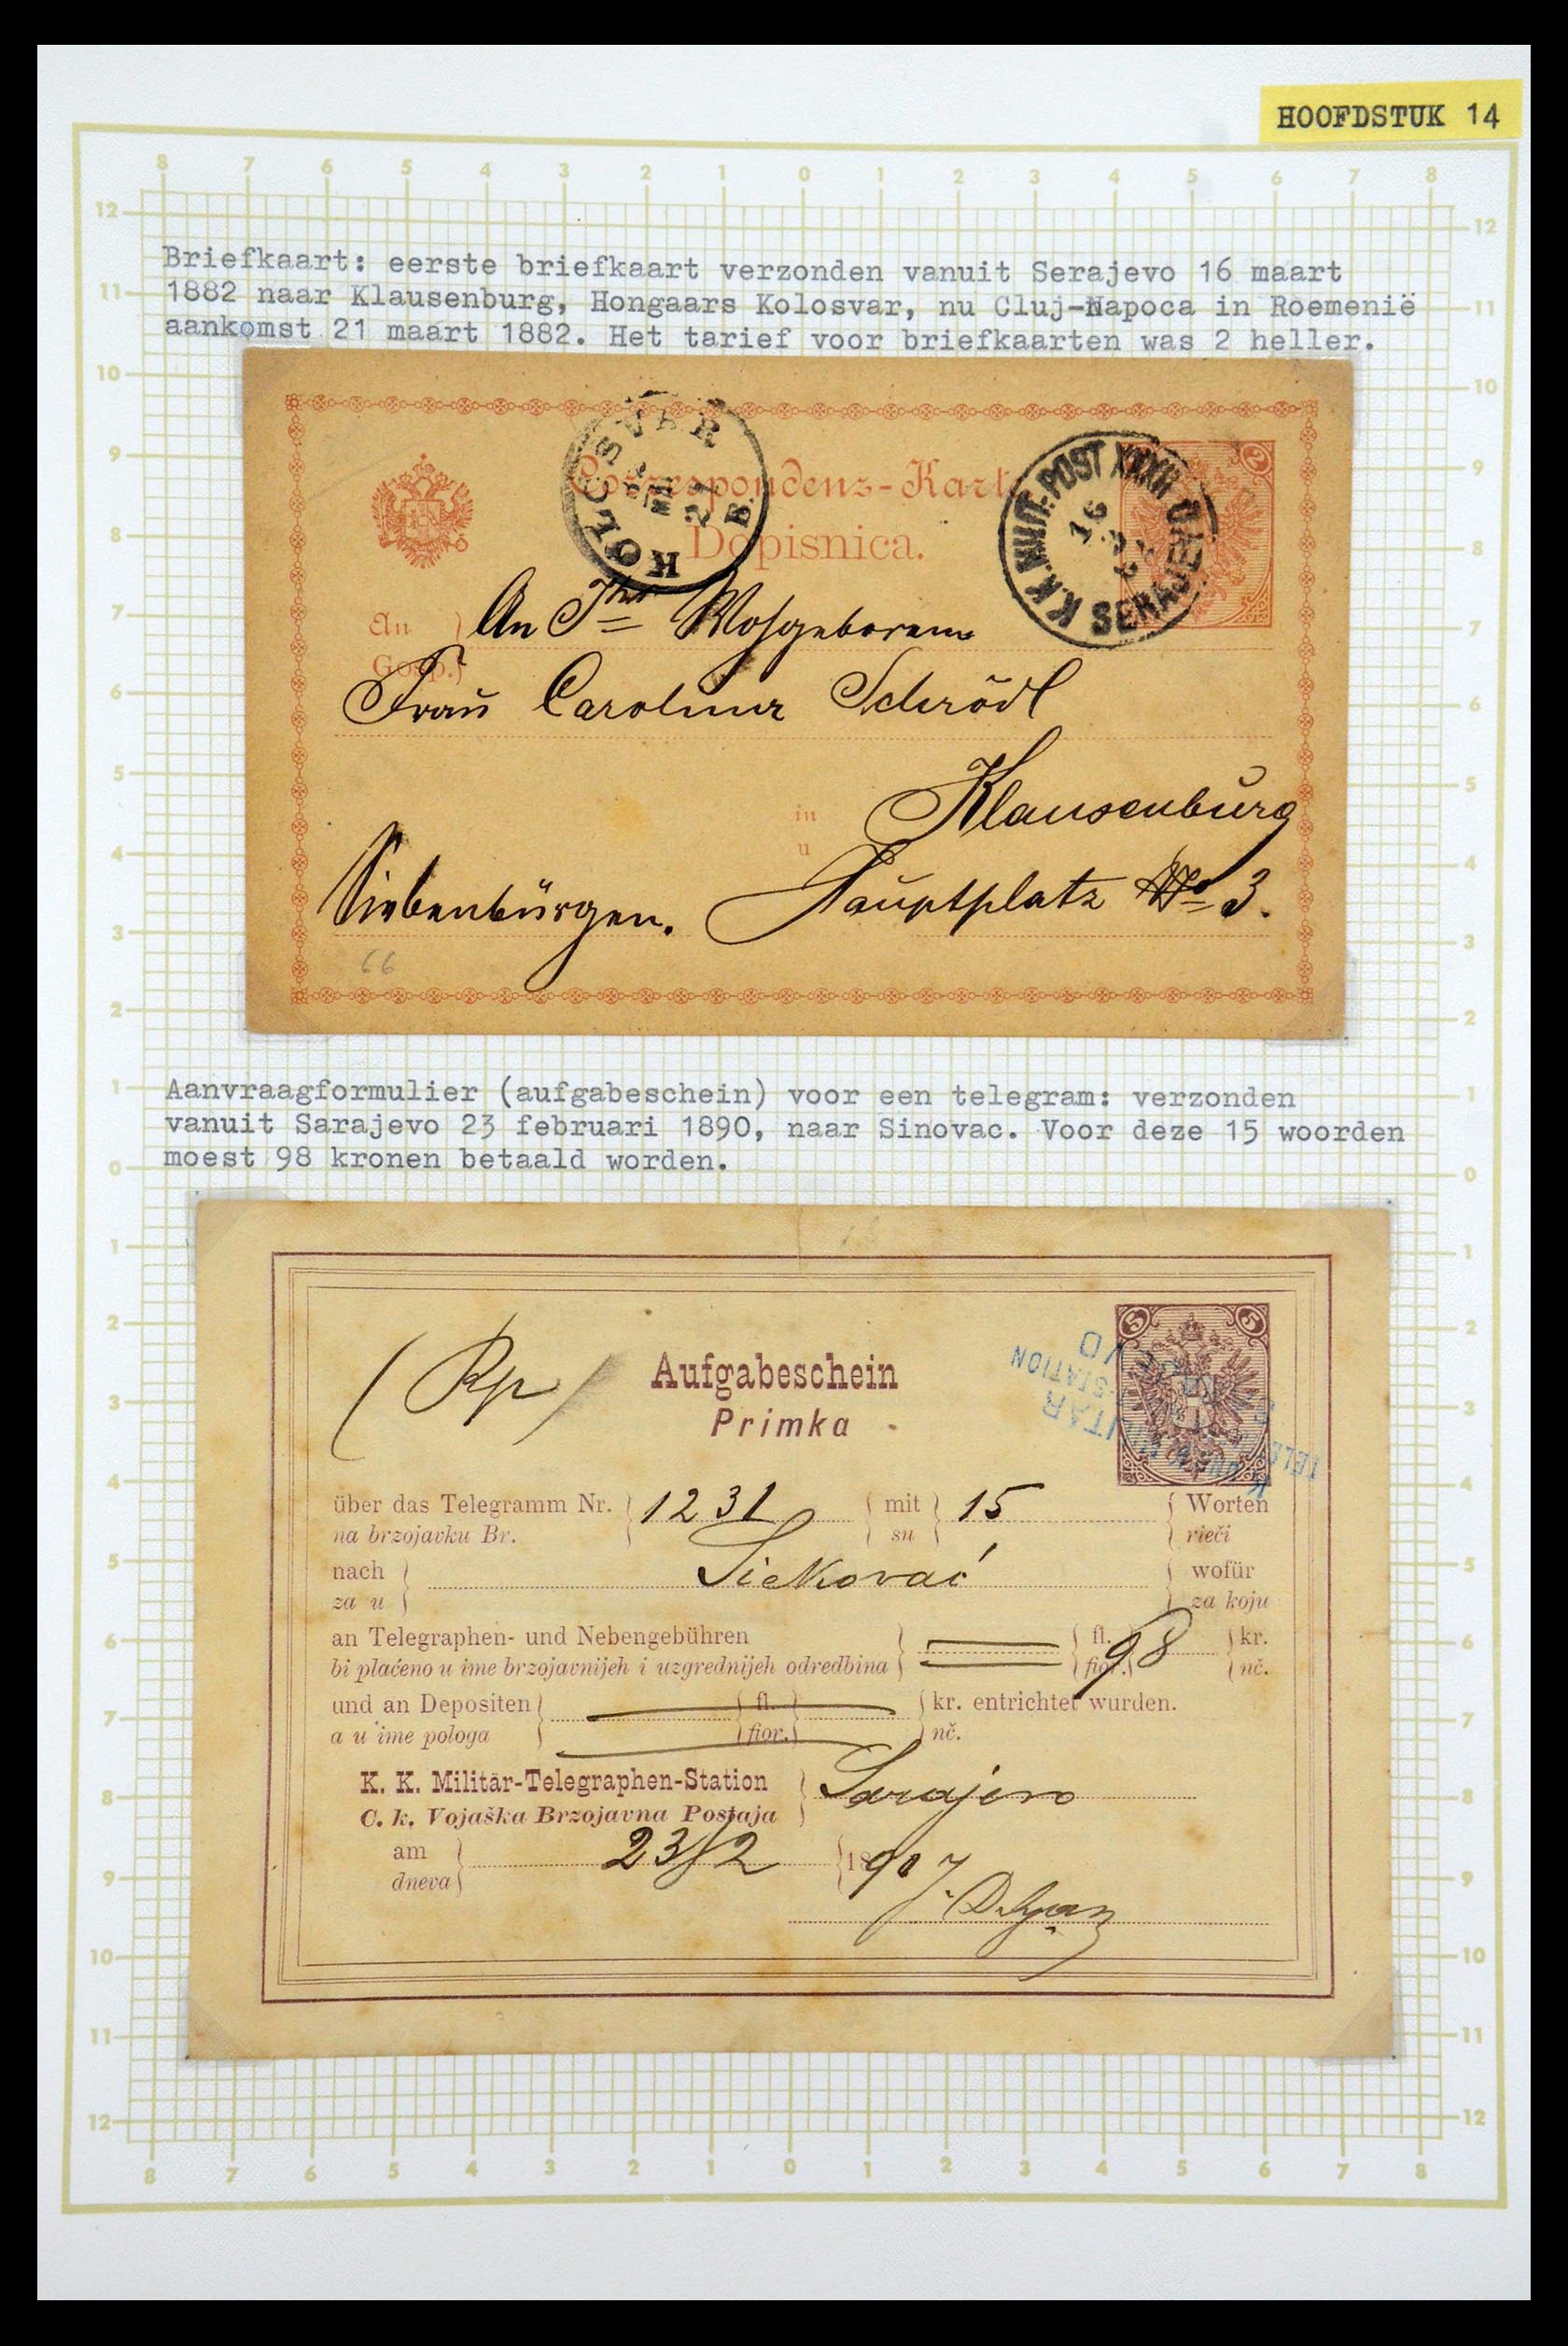 HOOFDSTUK 14
8 7 6 5 4 3 2 1 0 1 2 3 4 5 6 7 8
Briefkaart: eerste briefkaart verzonden vanuit Serajevo 16 maart
1882 naar Klausenburg, Hongaars Kolosvar, nu Cluj-Napoca in Roemenië
aankomst 21 maart 1882. Het tarief voor briefkaarten was 2 heller.
KOLOSVÁR
21
B.
Correspondenz-Karte
Dopisnica.
K.K. MILIT: POST XXXII
SERAJEVO
16
2
An
Gosp.
An Ihr Wolgeboren
Frau Caroline Schrödl
in
u
Klausenburg
Siebenbürgen. Hauptplatz No 3.
66
Aanvraagformulier (aufgabeschein) voor een telegram: verzonden
vanuit Sarajevo 23 februari 1890, naar Sinovac. Voor deze 15 woorden
moest 98 kronen betaald worden.
5 5
(Rp)
Aufgabeschein
Primka
über das Telegramm Nr. 1231 mit 15 Worten
na brzojavku Br. su rieči
nach wofür
za u za koju
an Telegraphen- und Nebengebühren fl. 98 kr.
bi plaćeno u ime brzojavnijeh i uzgrednijeh odredbina fior. nč.
und an Depositen fl. kr. entrichtet wurden.
a u ime pologa fior. nč.
K. K. Militär-Telegraphen-Station Sarajevo
C. k. Vojaška Brzojavna Postaja
am 23/2 1890
dneva
8 7 6 5 4 3 2 1 0 1 2 3 4 5 6 7 8